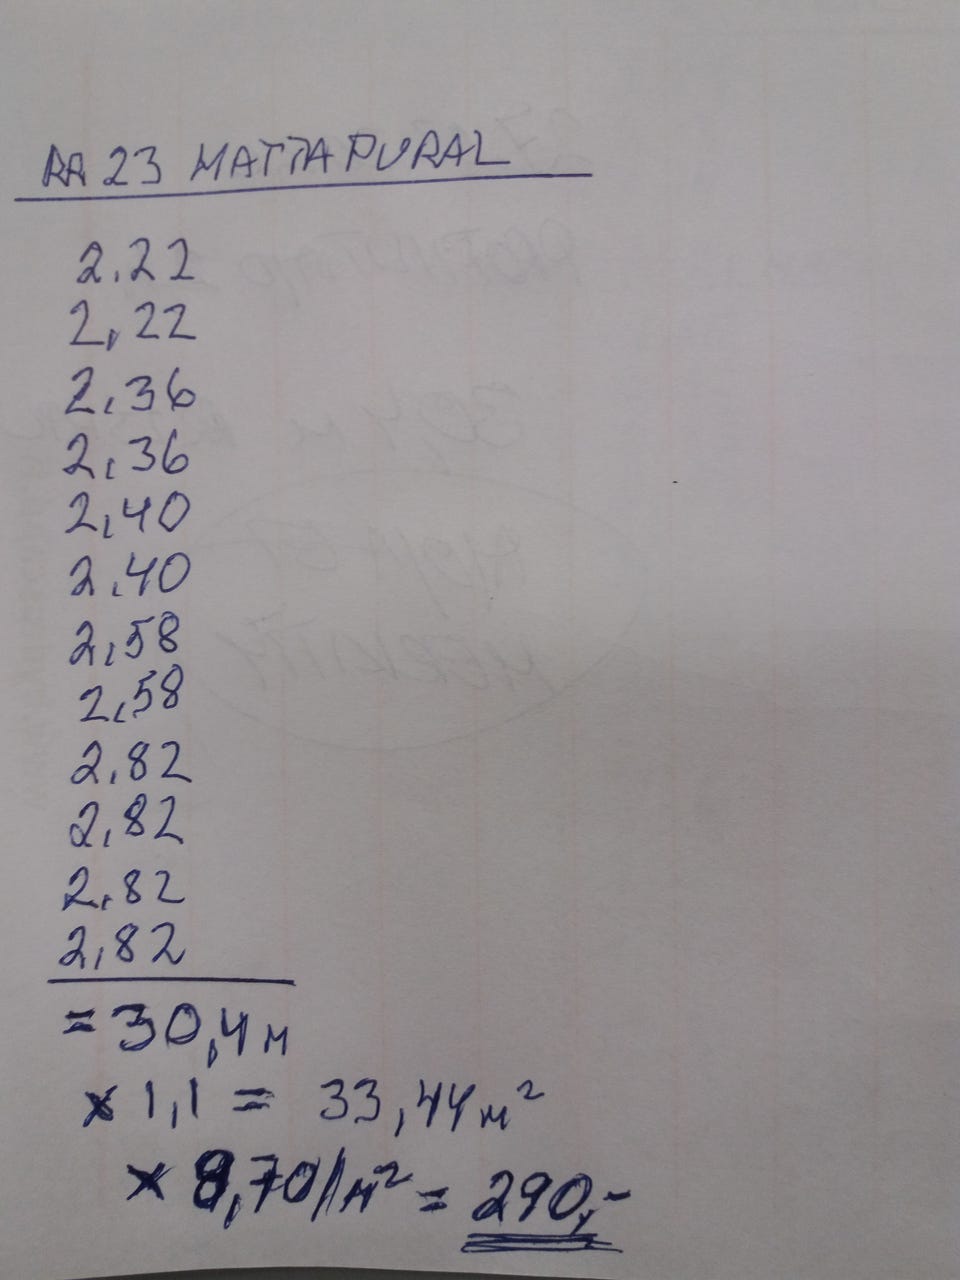 RR 23 MATTAPURAL
2.22
2,22
2,36
2,36
2,40
2,40
2,58
2,58
2,82
2,82
2,82
2,82
= 30,4 M
x 1,1 = 33,44 m²
x 8,70/m² = 290,-